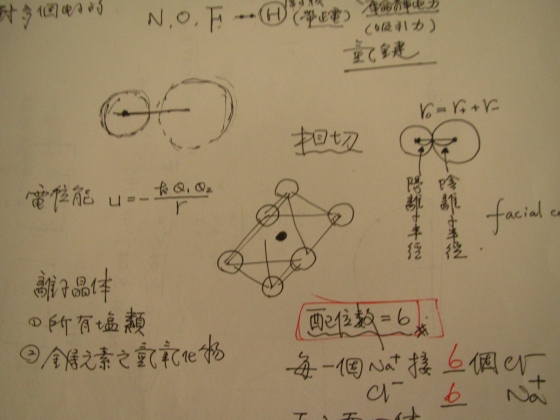 對多個電子的
N、O、F ••• H (帶正電) (吸引力)
氫鍵
r₀ = r₊ + r₋
相切
陽離子半徑
陰離子半徑
電位能 u = - k Q₁ Q₂ / r
facial
離子晶体
① 所有塩類
② 金屬元素之氫氧化物
配位數 = 6
每一個 Na⁺ 接 6 個 Cl⁻
Cl⁻ 6 Na⁺